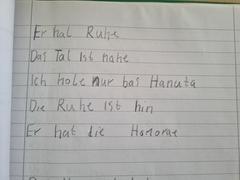 Er hal Ruhe
Das Tal ist nahe
Ich hole nur bai Hanuta
Die Ruhe ist hin
Er hat die